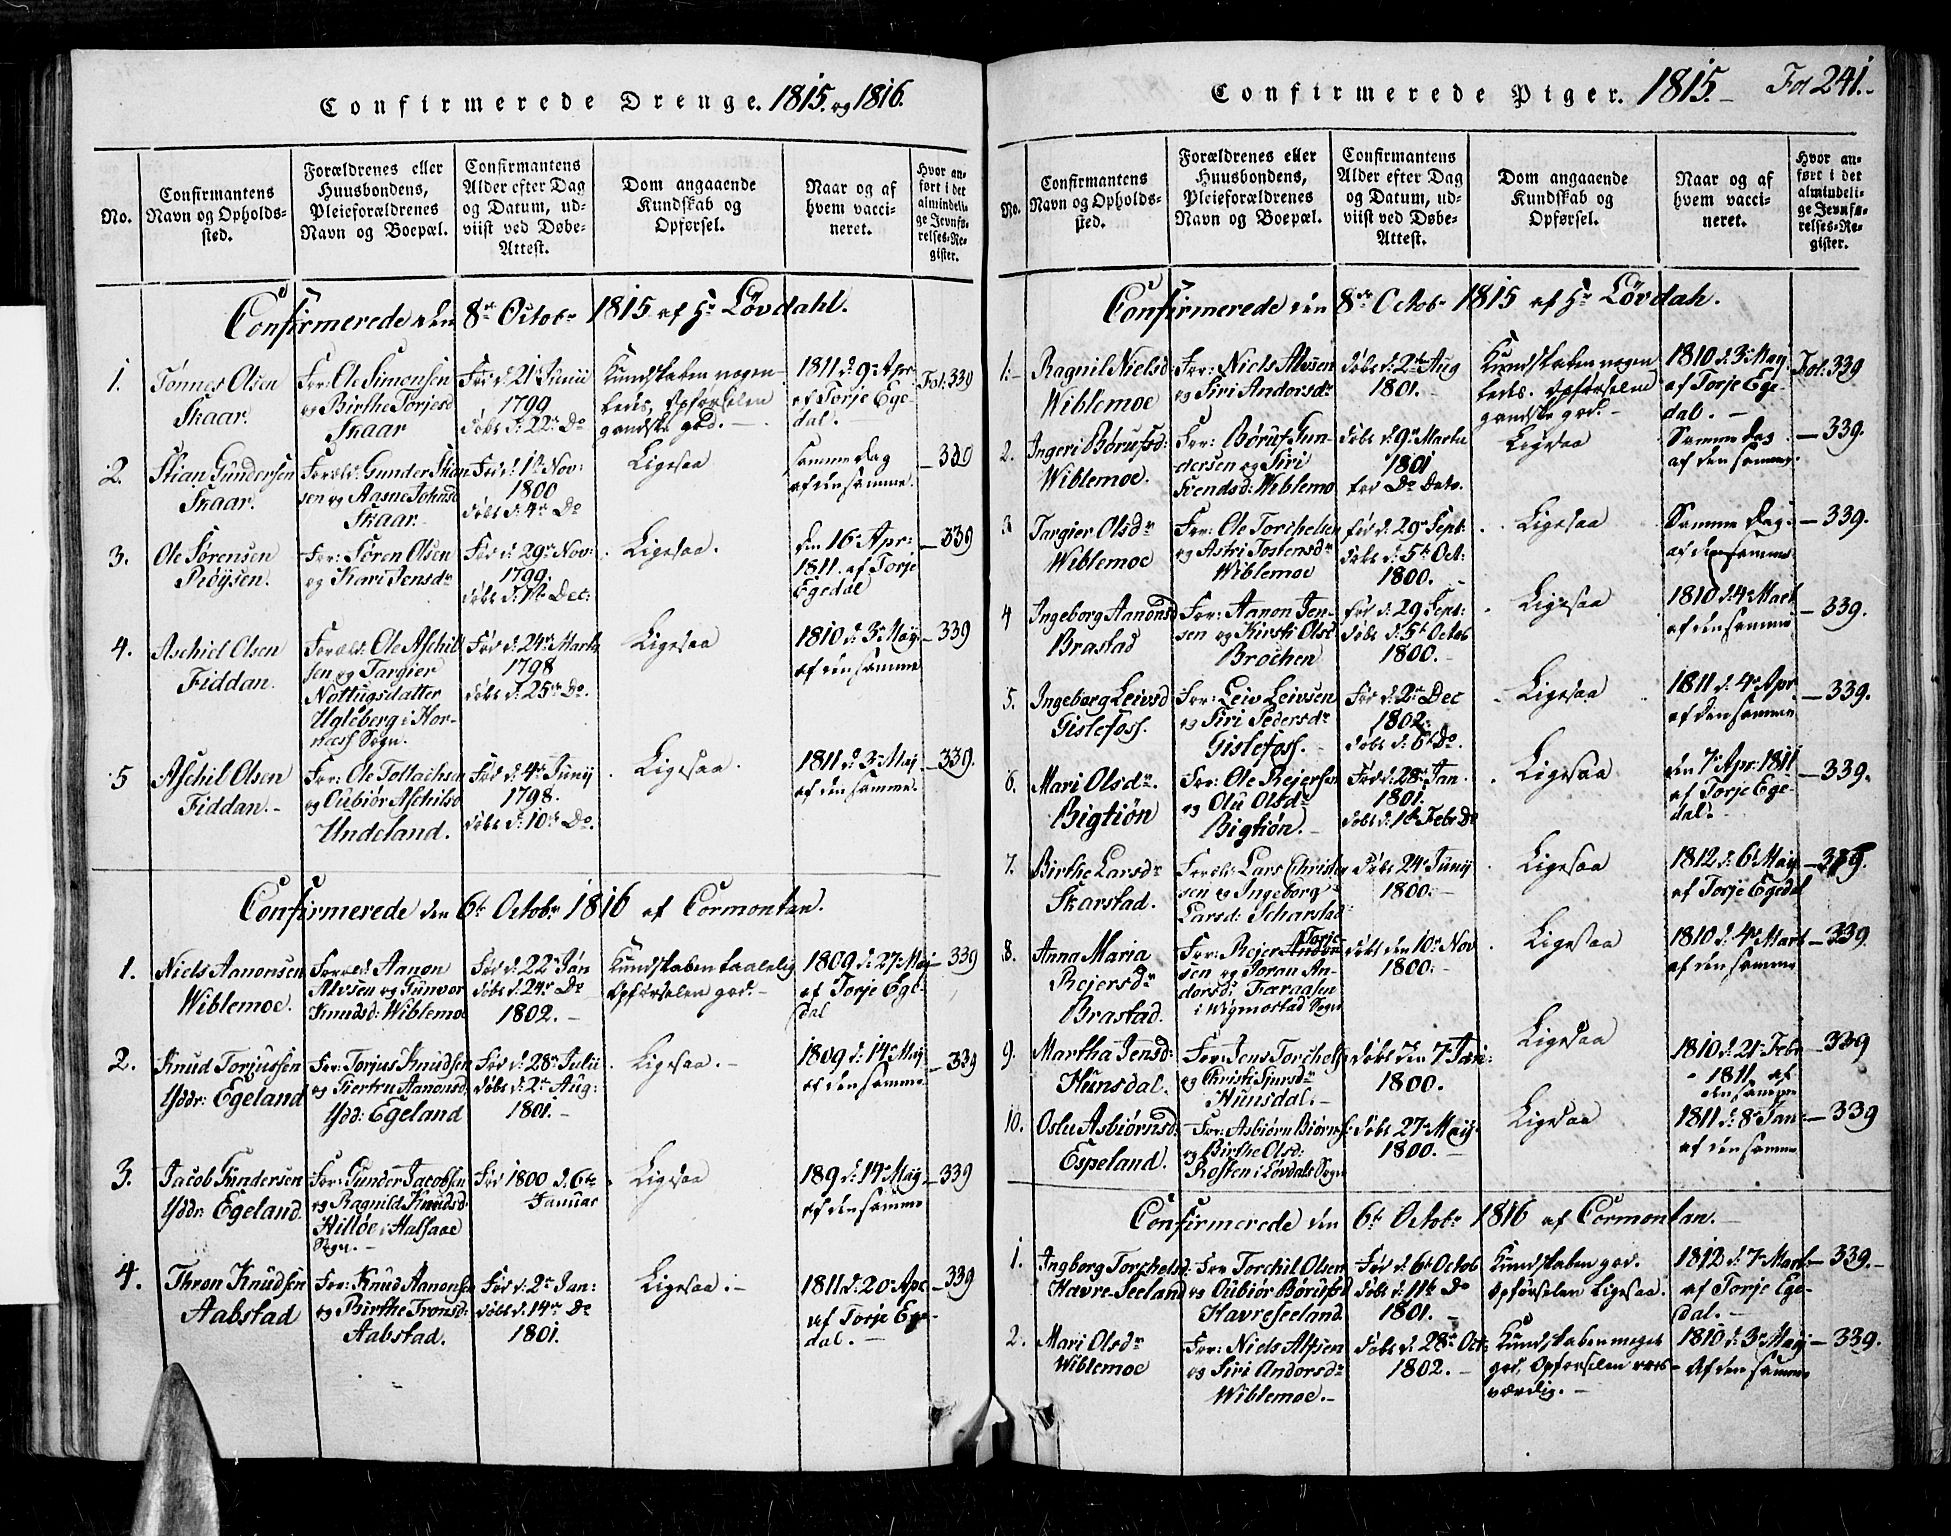 Confirmerede Drenge. 1815. og 1816.
No.
Confirmantens
Navn og Opholds-
sted.
Forældrenes eller
Huusbondens,
Pleieforældrenes
Navn og Boepæl.
Confirmantens
Alder efter Dag
og Datum, ud-
viist ved Døbe-
Attest.
Dom angaaende
Kundskab og
Opførsel.
Naar og af
hvem vacci-
neret.
Hvor an-
ført i det
almindeli-
ge Jevnfø-
relses-Re-
gister.
Confirmerede den 8de Octobr 1815 af Hr Lövdahl.
1.
Tönnes Olsen
Skaar.
For: Ole Simonsen
og Birthe Torjesd
Skaar
Föd d: 21de Junii
1799
döbt d: 22de Do
Kundskaben nogen-
ledes, Opförselen
gandske god. -
1811 d: 9de Apr
af Torje Ege-
dal. -
Fol: 339
2.
Stian Gundersen
Skaar.
Foræld: Gunder Stian
sen og Aasne Johnsd
Skaar.
Föd d: 1te Nov:
1800
döbt d: 4de Do
Ligesaa
samme Dag
af den samme.
- 339
3.
Ole Sörensen
Röÿsen.
For: Sören Olsen
og Kari Jensdr
Föd d: 29de Nov:
1799.
döbt d: 1te Dec:
Ligesaa.
den 16de Apr:
1811. af Torje
Egedal
- 339
4.
Aschiel Olsen
Fiddan.
Foræld: Ole Aschild
sen og Targier
Nottugsdatter
Ugleberg i Hor-
næss Sogn.
Föd d: 24de Martii
1798
döbt d: 25de Do.
Ligesaa
1810 d: 3de Maÿ
af den samme
- 339
5
Aschil Olsen
Fiddan. -
For: Ole Tollachsen
og Oubiör Aschilsd
Undeland.
Föd d: 4de Junij
1798.
döbt d: 10de Do.
Ligesaa.
1811 d: 3de Maj
af den samme.
- 339.
Confirmerede den 6te Octobr 1816 af Cormontan.
1.
Niels Aanonsen
Wiblemoe.
Foræld: Aanon
Alvsen og Gunvor
Knudsd: Wiblemoe
Föd d: 22de Jan
döbt d: 24de Do
1802. -
Kundskaben taalelig
Opförselen god. -
1809 d: 27de Mai
af Torje Ege-
dal
- 339
2.
Knud Torjussen
Yddr: Egeland
For: Torjus Knudsen
og Giertru Aanonsd:
Ydd: Egeland
Föd d: 28de Julii
döbt d: 2de Aug:
1801. -
Ligesaa. -
1809 d: 14de Maj
af den samme
- 339
3.
Jacob Gundersen
Yddr: Egeland.
For: Gunder Jacobsen
og Ragnild Knudsd:
Hillöe i Aalsaae
Sogn. -
Föd 1800 d: 6te
Januar
Ligesaa
189 d: 14de Maÿ
af den samme
- 339
4.
Thron Knudsen
Aabstad
For: Knud Aanonsen
og Birthe Tronsd:
Aabstad.
Föd d: 2de Jan:
döbt d: 14de Do
1801.
Ligesaa. -
1811 d: 20de Apr
af Torje Ege-
dal. -
- 339
Confirmerede Piger. 1815. -
Fol 241. -
No.
Confirmantens
Navn og Opholds-
sted.
Forældrenes eller
Huusbondens,
Pleieforældrenes
Navn og Boepæl.
Confirmantens
Alder efter Dag
og Datum, ud-
viist ved Døbe-
Attest.
Dom angaaende
Kundskab og
Opførsel.
Naar og af
hvem vacci-
neret.
Hvor an-
ført i det
almindeli-
ge Jevnfø-
relses-Re-
gister.
Confirmerede den 8de Octobr 1815 af Hr Lövdah.
1. -
Ragnil Nielsd
Wiblemoe
For: Niels Alvsen
og Siri Andorsdr
döbt d: 2den Aug
1801.
Kundskaben nogen
ledes. Opförselen
gandske god. -
1810 d: 3de Maÿ
af Torje Ege-
dal. -
Fol: 339
2.
Ingeri Börufsd:
Wiblemoe.
For: Böruf Gun-
dersen og Siri
Svendsd: Wiblemo
döbt d: 9de Martii
1801
Ligesaa
Samme Dag
af den samme.
- 339.
3
Targier Olsdr
Wiblemoe
For: Ole Torchelsen
og Astri Tostensdr
Wiblemoe
föd d: 29de Sept:
döbt d: 5te Oct:
1800. -
Ligesaa
Samme Dag
af den samme
- 339.
4
Ingeborg Aanonsd
Brastad
For: Aanon Jen-
sen og Kirsti Olsd
Brochen
föd d: 29 Sept:
döbt d: 5te Octob
1800. -
Ligesaa
1810 d: 4de Mart
af den samme
- 339.
5.
Ingeborg Leivsd
Gislefoss.
For: Leiv Leivsen
og Siri Pedersdr
Gislefoss. -
Föd d: 2de Dec
1802.
döbt d: 6te Do.
Ligesaa
1811 d: 4de Apr
af den samme
- 339.
6.
Mari Olsdr.
Bigtiön
For: Ole Rejersen
og Olu Olsdr
Bigtiön. -
Föd d: 28de Jan.
1801.
döbt d: 1te Febr Do
Ligesaa
den 7de Apr: 1811
af Torje Ege-
dal. -
- 339.
7.
Birthe Larsdr
Skarstad.
Foræld: Lars Christen
sen og Ingeborg
Larsd: Scharstad
Döbt 24de Junij
1800. -
Ligesaa
1812 d: 6te Maij
af Torje Egedal
- 339.
8.
Anna Maria
Rejersdr
Brastad.
For: Rejer Torje
sen og Joran An-
dorsd: Faragsen
i Wigmostad Sogn
döbt den 10de Nov
1800. -
Ligesaa
1810 d: 4de Mart
af den samme
- 339
9.
Martha Jensd:
Hunsdal.
For: Jens Torchels
og Christi Sjursdr
Hunsdal. -
döbt den 7de Jan:
1800.
Ligesaa
1810 d: 21de Febr
- 1811. af
den samme
- 339
10.
Oslu Asbiörnsd:
Espeland.
For: Asbiörn Biörns:
og Birthe Olsd:
Rosten i Lövdals Sogn
döbt 27de Maij.
1800. -
Ligesaa
1811 d: 8de Jan:
af den samme
- 339
Confirmerede den 6te Octobr 1816 af Cormontan. -
1.
Ingborg Torchelsd:
Havre-Seeland
For Torchil Olsen
og Oubiör Börufsd
Havreseeland
Föd d: 6te Octob
döbt d: 11te Do
1801. -
Kundskaben god.
Opförselen Ligesaa.
1812 d: 7de Mart
af Torje Ege-
dal. -
- 339. -
2.
Mari Olsdr
Wiblemoe
For: Niels Alfsen
og Siri Andorsdr
Wiblemoe. -
döbt d: 28de Oct:
1802. -
Kundskaben meget
god, Opförselen roes-
værdig. -
1810 d: 3de Maij
af den samme
- 339.